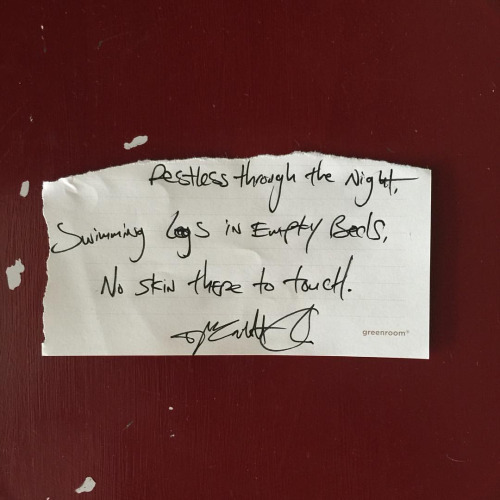 Restless through the Night,
Swimming legs in Empty Beds,
No skin there to touch.
greenroom